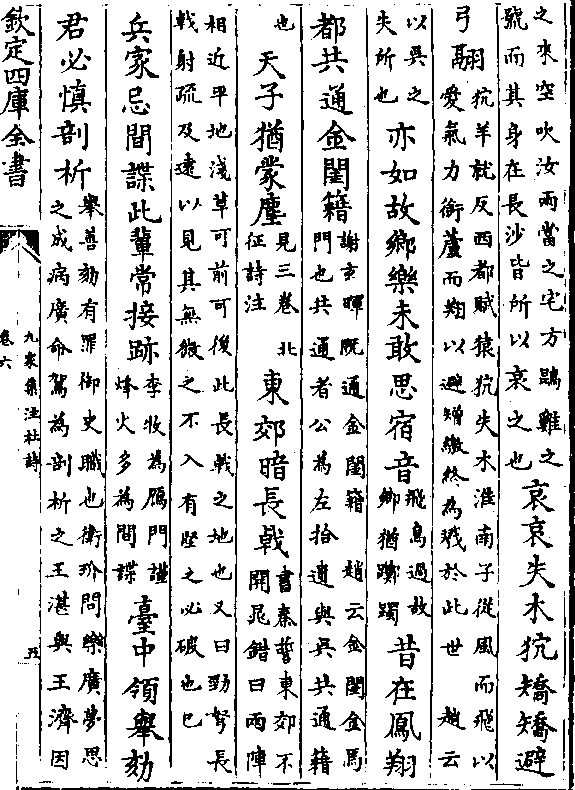 之來空吹汝兩當之宅方鵾雞之
號而其身在長沙皆所以哀之也
哀哀失木狖矯矯避
弓翮
狖羊就反西都賦猿狖失木淮南子從風而飛以
愛氣力銜蘆而翔以避矰繳終為戮於此世 趙云
以吳之
失所也
亦如故鄉樂未敢思宿昔
飛鳥過故
鄉猶躑躅
昔在鳳翔
都共通金閨籍
謝玄暉既通金閨籍 趙云金閨金馬
門也共通者公為左拾遺與吳共通籍
也
天子猶蒙塵
見三卷北
征詩注
東郊暗長戟
書秦誓東郊不
開晁錯曰兩陣
相近平地淺草可前可後此長戟之地也又曰勁弩長
戟射疏及遠以見其無微之不入有堅之必破也已
兵家忌間諜此輩常接跡
李牧為鴈門謹
烽火多為間諜
臺中領舉劾
君必慎剖析
舉善劾有罪御史職也衛玠問樂廣夢思
之成病廣命駕為剖析之王湛與王濟因
欽定四庫全書
九家集注杜詩
卷六
五